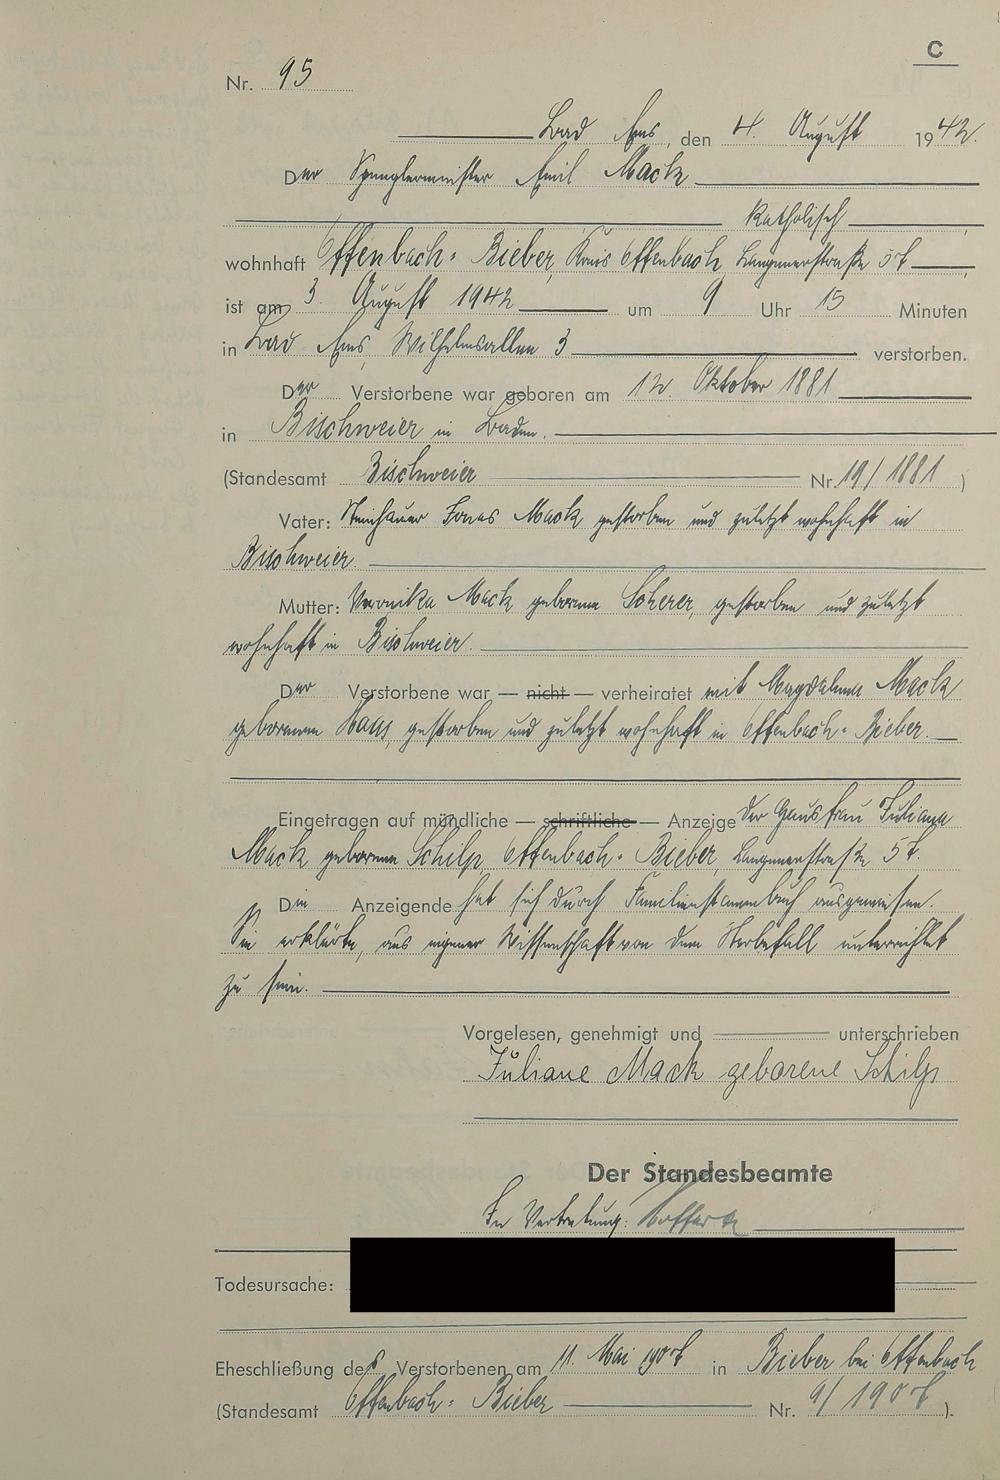 C
Nr. 95
Bad Ems, den 4. August 1942.
Der Spenglermeister Emil Mack
katholisch
wohnhaft Offenbach-Bieber, Kreis Offenbach, Langenerstraße 57
ist am 3. August 1942 um 9 Uhr 15 Minuten
in Bad Ems, Wilhelmsallee 3 verstorben.
Der Verstorbene war geboren am 12. Oktober 1881
in Bischweier in Baden.
(Standesamt Bischweier Nr. 19/1881)
Vater: Steinhauer Mack gestorben und zuletzt wohnhaft in
Bischweier.
Mutter: Veronika Mack geborene Scherer, gestorben und zuletzt
wohnhaft in Bischweier.
Der Verstorbene war — nicht — verheiratet mit Magdalena Mack
geborenen Haus, gestorben und zuletzt wohnhaft in Offenbach-Bieber.
Eingetragen auf mündliche — schriftliche — Anzeige der Hausfrau Juliana
Mack geborene Schilp, Offenbach-Bieber, Langenerstraße 57.
Die Anzeigende hat sich durch Familienstammbuch ausgewiesen.
Sie erklärte, aus eigener Wissenschaft von dem Sterbefall unterrichtet
zu sein.
Vorgelesen, genehmigt und unterschrieben
Juliane Mack geborene Schilp
Der Standesbeamte
In Vertretung:
Todesursache:
Eheschließung des Verstorbenen am 11. Mai 1907 in Bieber bei Offenbach
(Standesamt Offenbach-Bieber Nr. 9/1907).